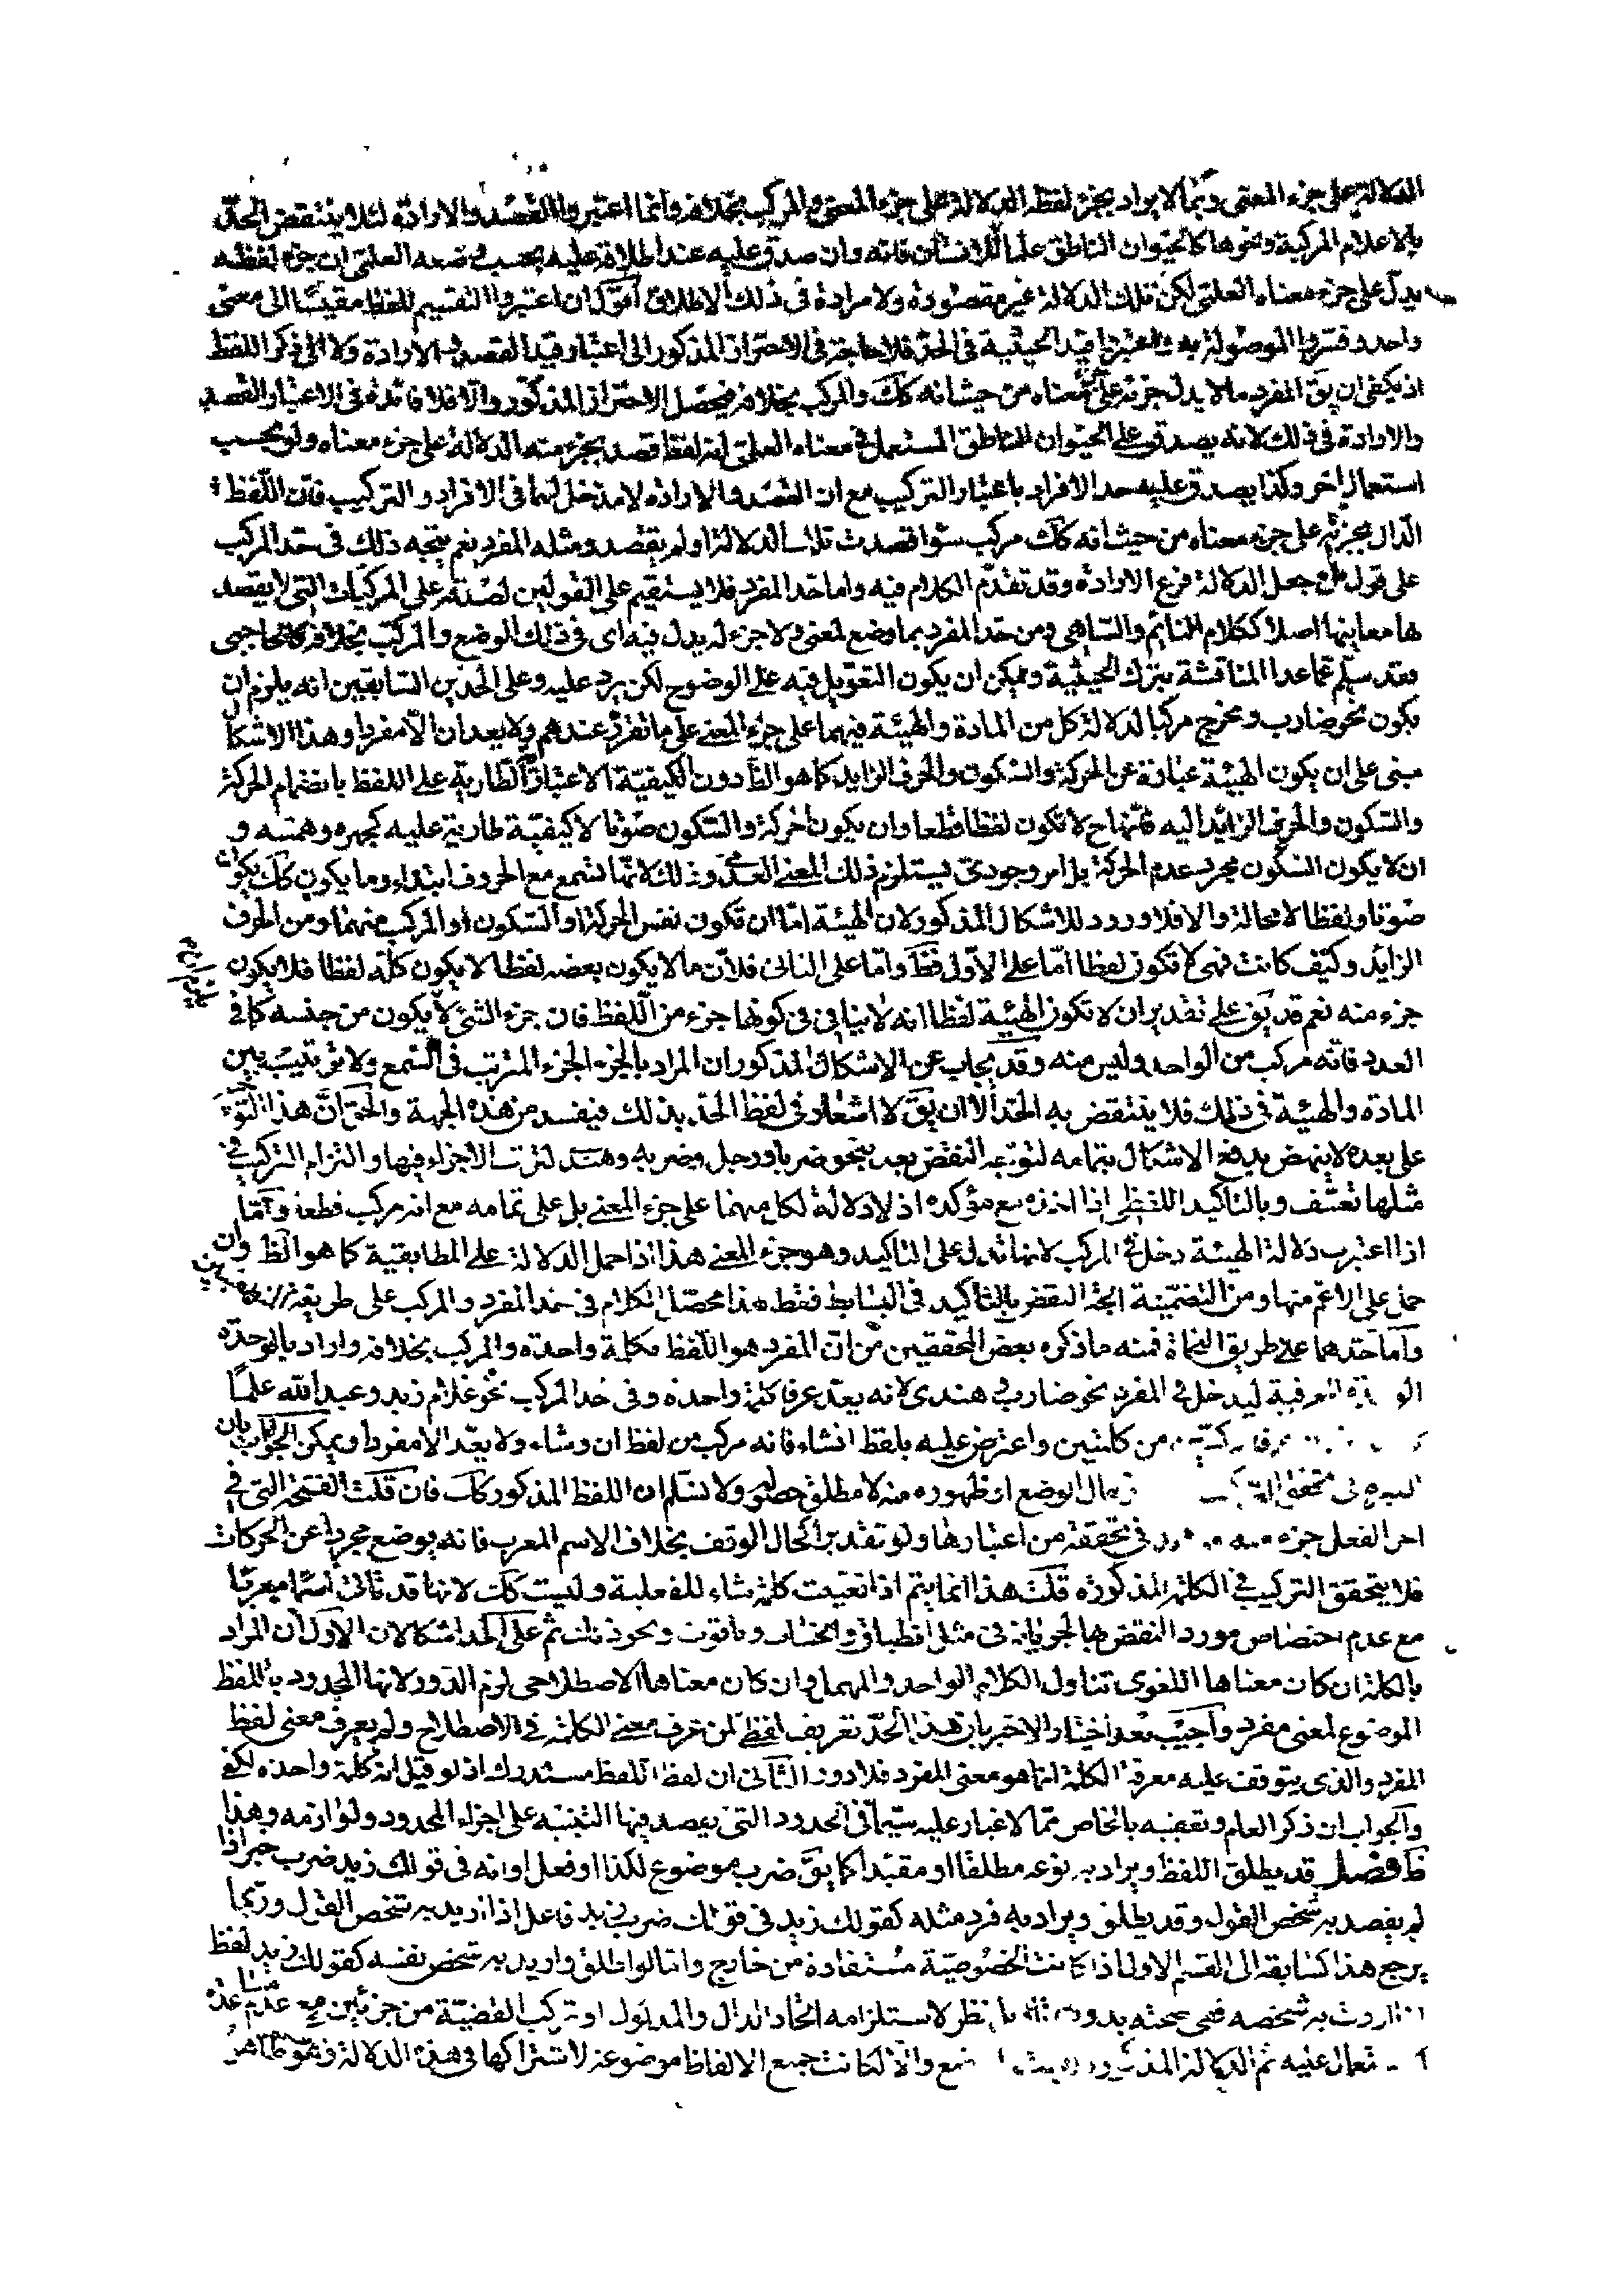 الدلالة على جزء المعنى وبما لا يراد بجزء لفظه الدلالة على جزء المعنى والمركب بخلافه وانما اعتبروا القصد والارادة لئلا ينتقض الحدّ
بالاعلام المركبة ونحوها كالحيوان الناطق علما للانسان فانه وان صدق عليه عند اطلاقه عليه بحسب وضعه العلمى ان جزء لفظه
يدل على جزء معناه العلمى لكن تلك الدلالة غير مقصودة ولا مرادة فى ذلك الاطلاق اقول ان اعتبروا التقسيم للفظ مقيسًا الى معنى
واحد وفسّروا الموصولة به او اعتبروا قيد الحيثية فى الحدّ فلا حاجة فى الاحتراز المذكور الى اعتبار قيد القصد والارادة ولا الى ذكر اللفظ
اذ يكفى ان يق المفرد ما لا يدل جزئه على جزء معناه من حيث انه كك والمركب بخلافه فيحصل الاحتراز المذكور والّا فلا فائدة فى الاعتبار القصد
والارادة فى ذلك لانه يصدق على الحيوان الناطق المستعمل فى معناه العلمى انه لفظ قصد بجزء منه الدلالة على جزء معناه ولو بحسب
استعمال اخر وكذا يصدق عليه حد الافراد باعتبار التركيب مع ان القصد والارادة لا مدخل لهما فى الافراد والتركيب فان اللّفظ
الدّال بجزئه على جزء معناه من حيث انه كك مركب سواء قصدت تلك الدلالة او لم يقصد ومثله المفرد نعم يتجه ذلك فى حد المركب
على قول من جعل الدلالة فرع الارادة وقد تقدّم الكلام فيه واما حد المفرد فلا يستقيم على القولين لصدقه على المركبات التى لا يقصد
بها معاينها اصلا ككلام النائم والساهى ومن حد المفرد بما وضع لمعنى ولا جزء له يدل فيه اى فى ذلك الوضع والمركب بخلافه كالحاجبى
فقد سلم عما عدا المناقشة بترك الحيثية ويمكن ان يكون التعويل فيه على الوضوح لكن يرد عليه وعلى الحدين السابقين انه يلزم ان
يكون نحو ضارب ومخرج مركبا لدلالة كل من المادة والهيئة فيهما على جزء المعنى على ما تقرّر عندهم ولا يعد ان الّا مفردا وهذا الاشكال
مبنى على ان يكون الهيئة عبارة عن الحركة والسكون والحرف الزايد كما هو الظّ دون الكيفيّة الاعتباريّة الطارية على اللفظ بانضمام الحركة
والسّكون والحرف الزائد اليه فانّها ح لا تكون لفظا قطعا وان يكون الحركة والسّكون صوتا لا كيفيّة طارية عليه كجهره وهمسه و
ان لا يكون السكون مجرد عدم الحركة بل امر وجودىّ يستلزم ذلك المعنى العدمى وذلك لانّها تسمع مع الحروف ابتداء وما يكون كك يكون
صوتا ولفظا لا محالة والا فلا ورود للاشكال المذكور لان الهيئة امّا ان تكون نفس الحركة او السّكون او المركب منهما ومن الحرف
الزائد وكيف كانت فهى لا تكون لفظا امّا على الاوّل فظ وامّا على الثانى فلانّ ما لا يكون بعضه لفظا لا يكون كلّه لفظا فلا يكون
جزء منه نعم قد يق على تقدير ان لا تكون الهيئة لفظا انه لا ينافى كونها جزء من اللّفظ فان جزء الشئ لا يكون من جنسه كما فى
العدد فانّه مركب من الواحد وليس منه وقد يجاب عن الاشكال المذكور ان المراد بالجزء الجزء المترتب فى السّمع ولا ترتيب بين
المادة والهيئة فى ذلك فلا ينتقض به الحدّ الّا ان يق لا اشعار فى لفظ الحدّ بذلك فيفسد من هذه الجهة والحقّ انّ هذا
على بعده لا ينهض بدفع الاشكال بتمامه لتوجه النقض بعد بنحو ضربا ورجل وضربه وهند لترتب الاجزاء فيها والتزام التركيب فى
مثلها تعسّف وبالتاكيد اللفظى اذا اخذه مع مؤكده اذ لا دلالة لكل منهما على جزء المعنى بل على تمامه مع انه مركب قطعا وامّا
اذا اعتبرت دلالة الهيئة دخل فى المركب لانها تدل على التاكيد وهو جزء المعنى هذا اذا حمل الدلالة على المطابقية كما هو الظّ وان
حمل على الاعم منها ومن التضمّنية اتجه النقض بالتاكيد فى البسايط فقط هذا محصّل الكلام فى حد المفرد والمركب على طريقة
وامّا حدّهما على طريق النحاة فمنه ما ذكره بعض المحققين من انّ المفرد هو اللّفظ بكلمة واحدة والمركب بخلافه واراد بالوحدة
العرفية ليدخل فى المفرد نحو ضارب وهندى لانه يعدّ عرفا كلمة واحدة وفى حد المركب نحو غلام زيد وعبد الله علمًا
من كلمتين واعترض عليه بلفظ انشاء فانه مركب من لفظ ان وشاء ولا يعدّ الا مفردا ويمكن الجواب بان
حال الوضع او ظهوره منه لا مطلق حصوله ولا نسلم ان اللفظ المذكور كك فان قلت الفتحة التى فى
اخر الفعل جزء فى تحققه من اعتبارها ولو تقديرا كحال الوقف بخلاف الاسم المعرب فانه يوضع مجردا عن الحركات
فلا يتحقق التركيب فى الكلمة المذكورة قلت هذا انما يتم اذا تعيّنت كلمة شاء للفعلية وليست كك لانها قد تاتى اسما معربا
مع عدم اختصاص مورد النقض بها لجريانه فى مثل انطباق ونحو ذلك ثم على الحد اشكالان الاوّل ان المراد
بالكلمة ان كان معناها اللغوى تناول الكلام الواحد والمهمل وان كان معناها الاصطلاحى لزم الدّور لانها المحدود باللفظ
الموضوع لمعنى مفرد واجيب بعد اختيار الاخير بان هذا الحدّ تعريف لفظىّ لمن عرف معنى الكلمة فى الاصطلاح ولم يعرف معنى لفظ
المفرد والذى يتوقف عليه معرفة الكلمة انما هو معنى المفرد فلا دور الثانى ان لفظ اللفظ مستدرك اذ لو قيل انه كلمة واحدة لكفى
والجواب ان ذكر العام وتعقيبه بالخاص ممّا لا غبار عليه سيّما فى الحدود التى يقصد فيها التنبيه على اجزاء المحدود ولوازمه وهذا
ظ فصل قد يطلق اللفظ ويراد به نوعه مطلقا او مقيّدا كما يق ضرب موضوع لكذا او فعل او انه فى قولك زيد ضرب خبر اذا
لم يقصد به شخص القول وقد يطلق ويراد به فرد مثله كقولك زيد فى قولك ضرب زيد فاعل اذا اريد به شخص القول وربّما
يرجع هذا كسابقه الى القسم الاول اذا كانت الخصوصيّة مستفادة من خارج وامّا لو اطلق واريد به شخص نفسه كقولك زيد لفظ
اذا اردت به شخصه ففى صحته بدون نظر لاستلزامه اتحاد الدال والمدلول او تركب القضيّة من جزئين مع عدم
ثم الدلالة والّا لكانت جميع الالفاظ موضوعة لاشتراكها فى هذه الدلالة وهو ظاهر